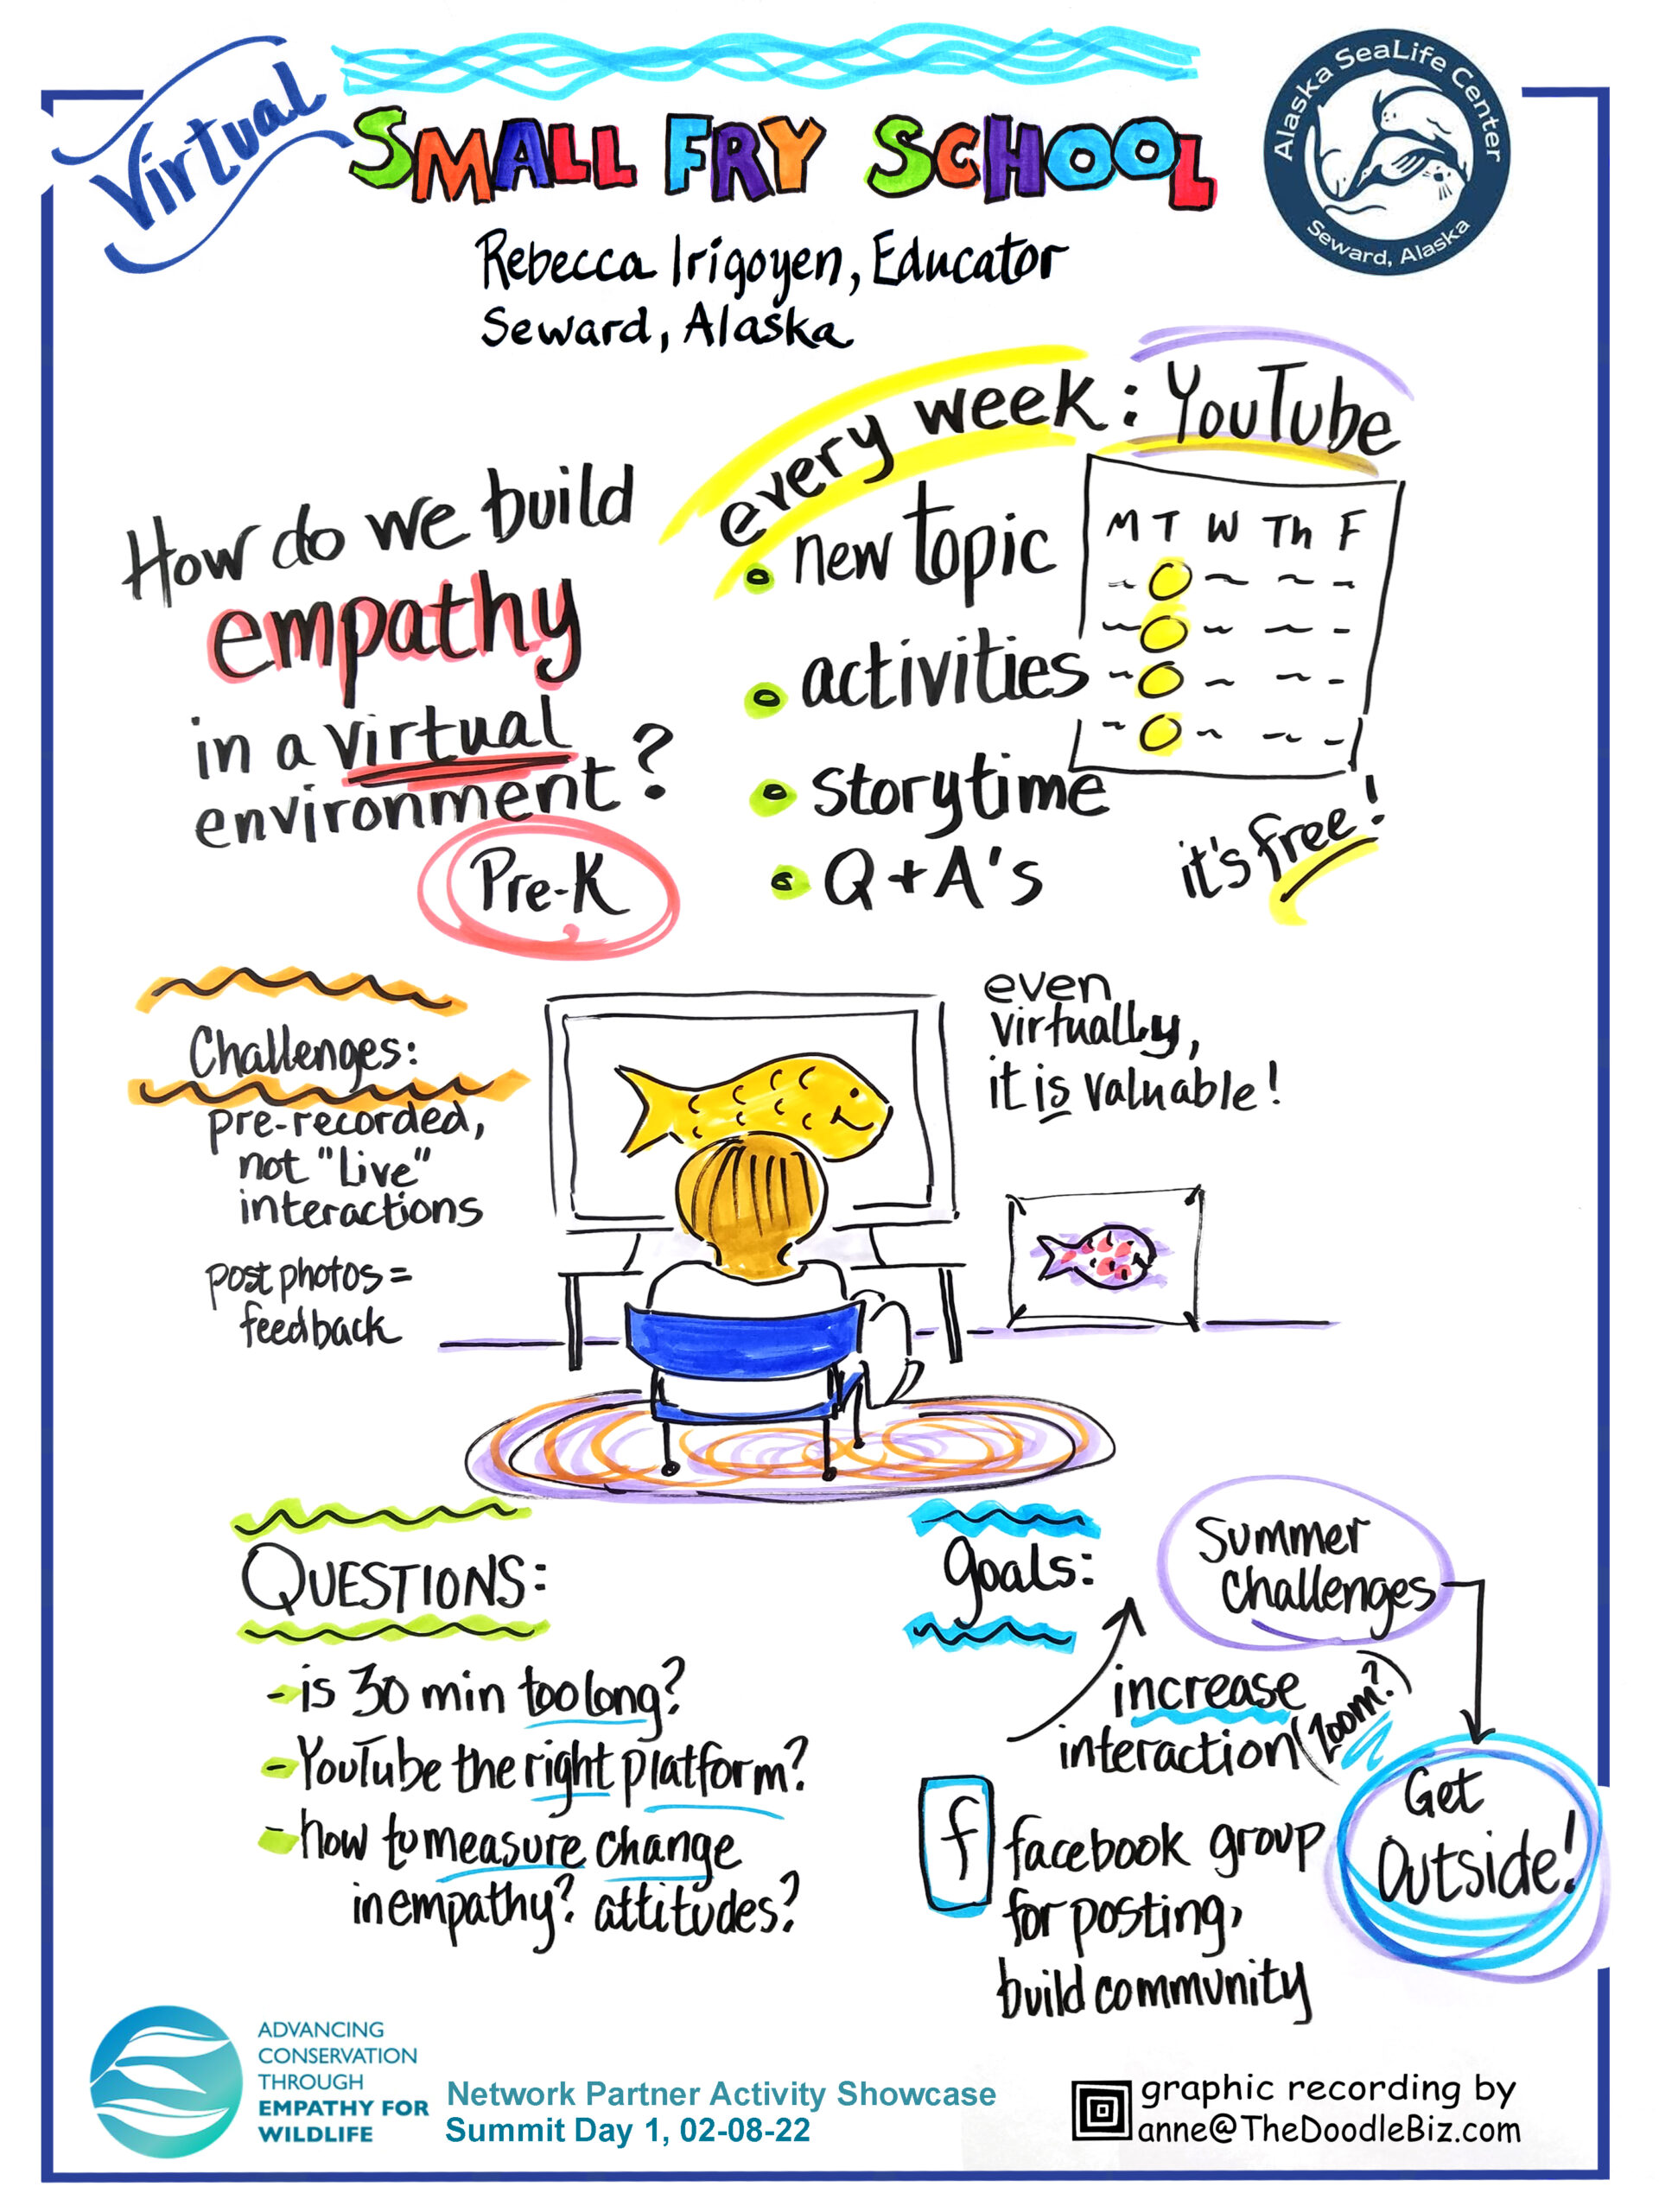 Virtual
SMALL FRY SCHOOL
Alaska SeaLife Center
Seward, Alaska
Rebecca Irigoyen, Educator
Seward, Alaska
How do we build
empathy
in a virtual
environment?
Pre-K
every week: YouTube
new topic
activities
storytime
Q+A's
M T W Th F
it's free!
Challenges:
pre-recorded,
not "Live"
interactions
post photos =
feedback
even
virtually,
it is valuable!
QUESTIONS:
- is 30 min too long?
- YouTube the right platform?
- how to measure change
in empathy? attitudes?
goals:
Summer
Challenges
increase
interaction (zoom?)
Get
Outside!
f
facebook group
for posting,
build community
ADVANCING
CONSERVATION
THROUGH
EMPATHY FOR
WILDLIFE
Network Partner Activity Showcase
Summit Day 1, 02-08-22
graphic recording by
anne@TheDoodleBiz.com